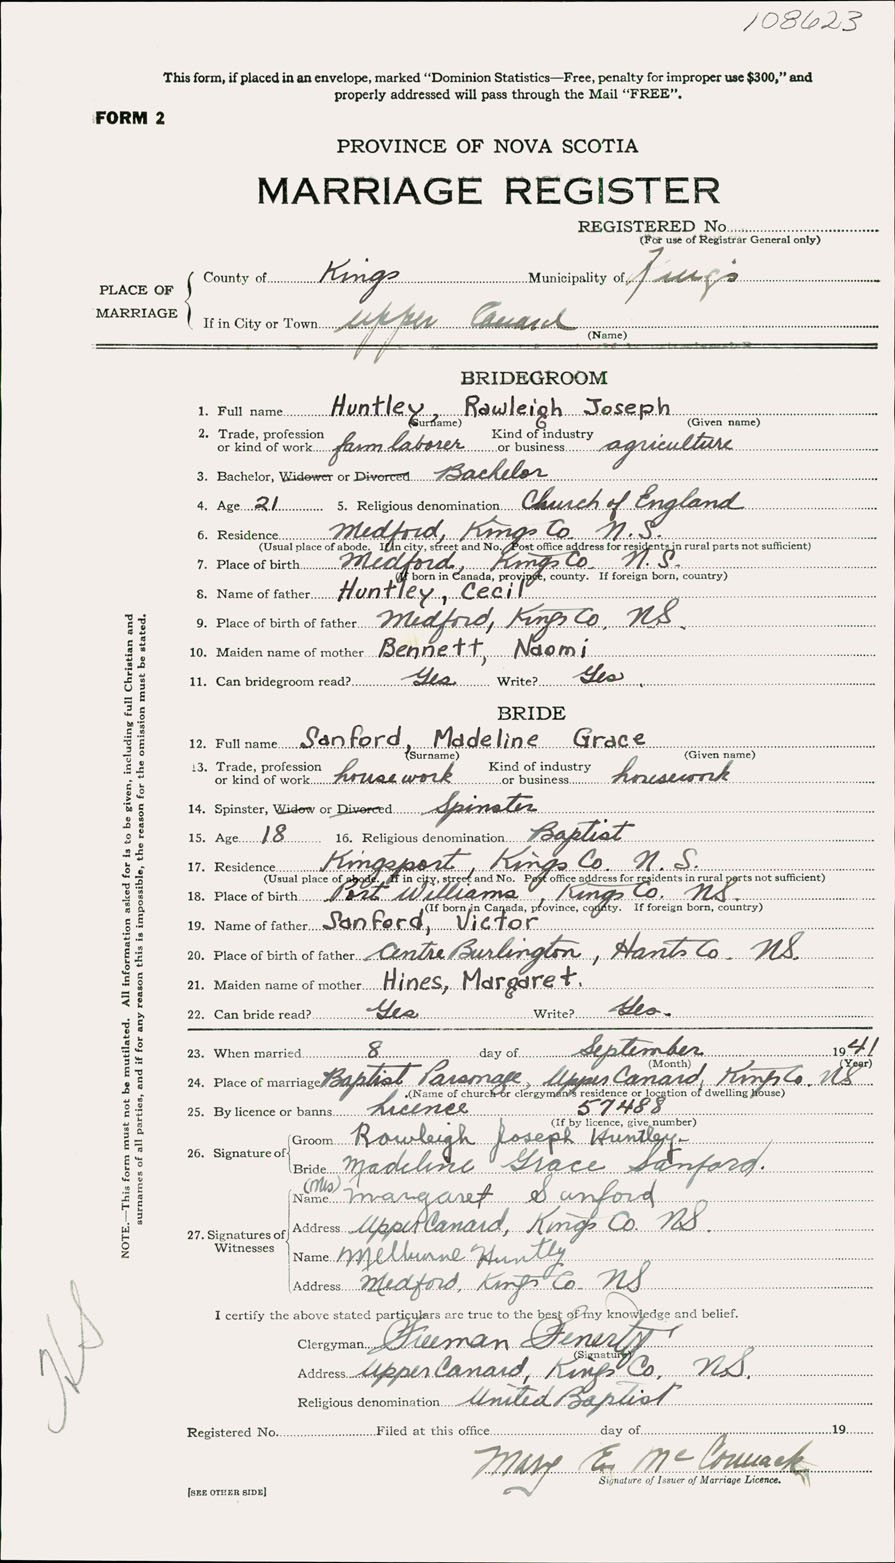 108623
This form, if placed in an envelope, marked “Dominion Statistics—Free, penalty for improper use $300,” and
properly addressed will pass through the Mail “FREE”.
FORM 2
PROVINCE OF NOVA SCOTIA
MARRIAGE REGISTER
REGISTERED No.
(For use of Registrar General only)
PLACE OF MARRIAGE
County of Kings Municipality of Kings
If in City or Town Upper Canard
(Name)
BRIDEGROOM
1. Full name Huntley, Rawleigh Joseph
(Surname) (Given name)
2. Trade, profession or kind of work farm laborer Kind of industry or business agriculture
3. Bachelor, Widower or Divorced Bachelor
4. Age 21 5. Religious denomination Church of England
6. Residence Medford, Kings Co. N.S.
(Usual place of abode. If in city, street and No. Post office address for residents in rural parts not sufficient)
7. Place of birth Medford, Kings Co. N.S.
(If born in Canada, province, county. If foreign born, country)
8. Name of father Huntley, Cecil
9. Place of birth of father Medford, Kings Co. NS.
10. Maiden name of mother Bennett, Naomi
11. Can bridegroom read? Yes Write? Yes
BRIDE
12. Full name Sanford, Madeline Grace
(Surname) (Given name)
13. Trade, profession or kind of work housework Kind of industry or business housework
14. Spinster, Widow or Divorced Spinster
15. Age 18 16. Religious denomination Baptist
17. Residence Kingsport, Kings Co. N.S.
(Usual place of abode. If in city, street and No. Post office address for residents in rural parts not sufficient)
18. Place of birth Port Williams, Kings Co. NS.
(If born in Canada, province, county. If foreign born, country)
19. Name of father Sanford, Victor
20. Place of birth of father Centre Burlington, Hants Co. NS.
21. Maiden name of mother Hines, Margaret.
22. Can bride read? Yes Write? Yes.
23. When married 8 day of September 1941
(Month) (Year)
24. Place of marriage Baptist Parsonage, Upper Canard, Kings Co. NS
(Name of church or clergyman's residence or location of dwelling house)
25. By licence or banns licence 57488
(If by licence, give number)
26. Signature of
Groom Rawleigh Joseph Huntley
Bride Madeline Grace Sanford.
27. Signatures of Witnesses
Name (Mrs) Margaret Sanford
Address Upper Canard, Kings Co. NS.
Name Melburne Huntly
Address Medford, Kings Co. NS
I certify the above stated particulars are true to the best of my knowledge and belief.
Clergyman Freeman Fenerty
(Signature)
Address Upper Canard, Kings Co. NS.
Religious denomination United Baptist
Registered No. Filed at this office day of 19
Mary E. McCormack
Signature of Issuer of Marriage Licence.
[SEE OTHER SIDE]
NOTE.—This form must not be mutilated. All information asked for is to be given, including full Christian and
surnames of all parties, and if for any reason this is impossible, the reason for the omission must be stated.